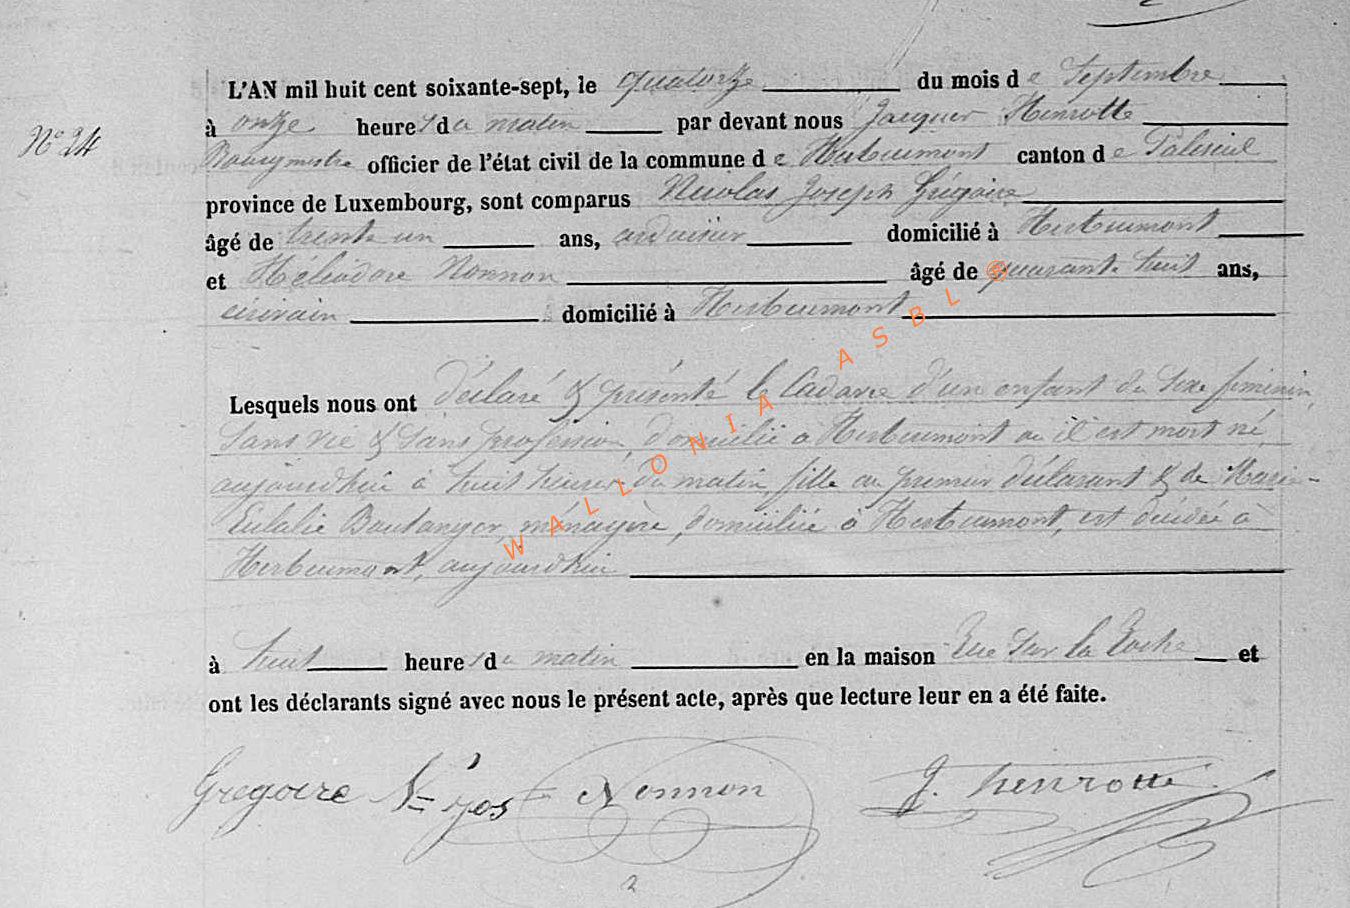 N° 24
L'AN mil huit cent soixante-sept, le quatorze du mois de Septembre
à onze heures du matin par devant nous Jacques Henrotte
Bourgmestre officier de l'état civil de la commune de Herbeumont canton de Paliseul
province de Luxembourg, sont comparus Nicolas Joseph Grégoire
âgé de trente un ans, ardoisier domicilié à Herbeumont
et Héliodore Nonnon âgé de quarante huit ans,
écrivain domicilié à Herbeumont
Lesquels nous ont déclaré & présenté le Cadavre d'un enfant du Sexe féminin,
Sans vie & Sans profession, domicilié à Herbeumont où il est mort né,
aujourdhui à huit heures du matin, fille au premier déclarant & de Marie-
Eulalie Boulanger, ménagère, domiciliée à Herbeumont, est décédée à
Herbeumont, aujourdhui
à huit heures du matin en la maison Rue Sur la Roche et
ont les déclarants signé avec nous le présent acte, après que lecture leur en a été faite.
Gregoire N= Jos Nonnon J. henrotte
WALLONIA ASBL ©